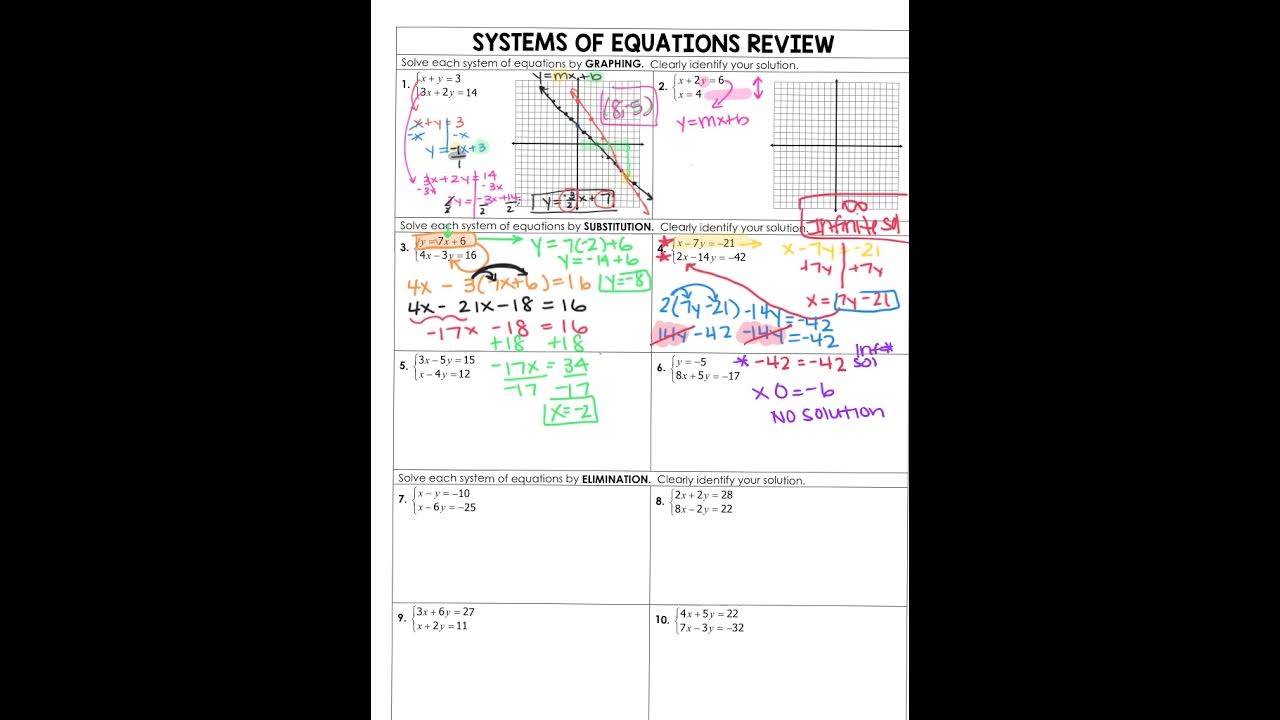 SYSTEMS OF EQUATIONS REVIEW
Solve each system of equations by GRAPHING. Clearly identify your solution.
1. x + y = 3
3x + 2y = 14
x + y = 3
-x -x
y = -1x + 3
1
3x + 2y = 14
-3x -3x
2y = -3x + 14
2 2 2
y = mx + b
(8, -5)
y = -3/2 x + 7
2. x + 2y = 6
x = 4
y = mx + b
∞
infinite sol
Solve each system of equations by SUBSTITUTION. Clearly identify your solution.
3. y = 7x + 6
4x − 3y = 16
y = 7(-2) + 6
y = -14 + 6
y = -8
4x - 3(7x + 6) = 16
4x - 21x - 18 = 16
-17x - 18 = 16
+18 +18
-17x = 34
-17 -17
x = -2
4. x − 7y = −21
2x − 14y = −42
x - 7y = -21
+7y +7y
x = 7y - 21
2(7y - 21) - 14y = -42
14y - 42 -14y = -42
* -42 = -42 inf* sol
x 0 = -6
NO SOLUTION
5. 3x − 5y = 15
x − 4y = 12
6. y = −5
8x + 5y = −17
Solve each system of equations by ELIMINATION. Clearly identify your solution.
7. x − y = −10
x − 6y = −25
8. 2x + 2y = 28
8x − 2y = 22
9. 3x + 6y = 27
x + 2y = 11
10. 4x + 5y = 22
7x − 3y = −32